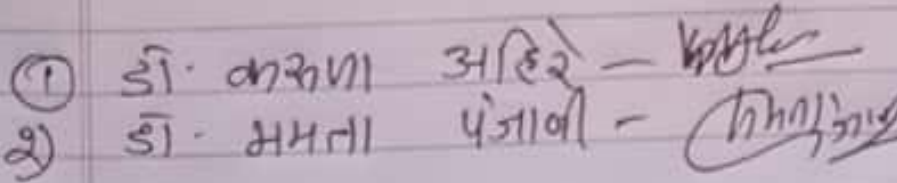 ① डॉ. करुणा अहिरे –
२) डॉ. ममता पंजाबी –